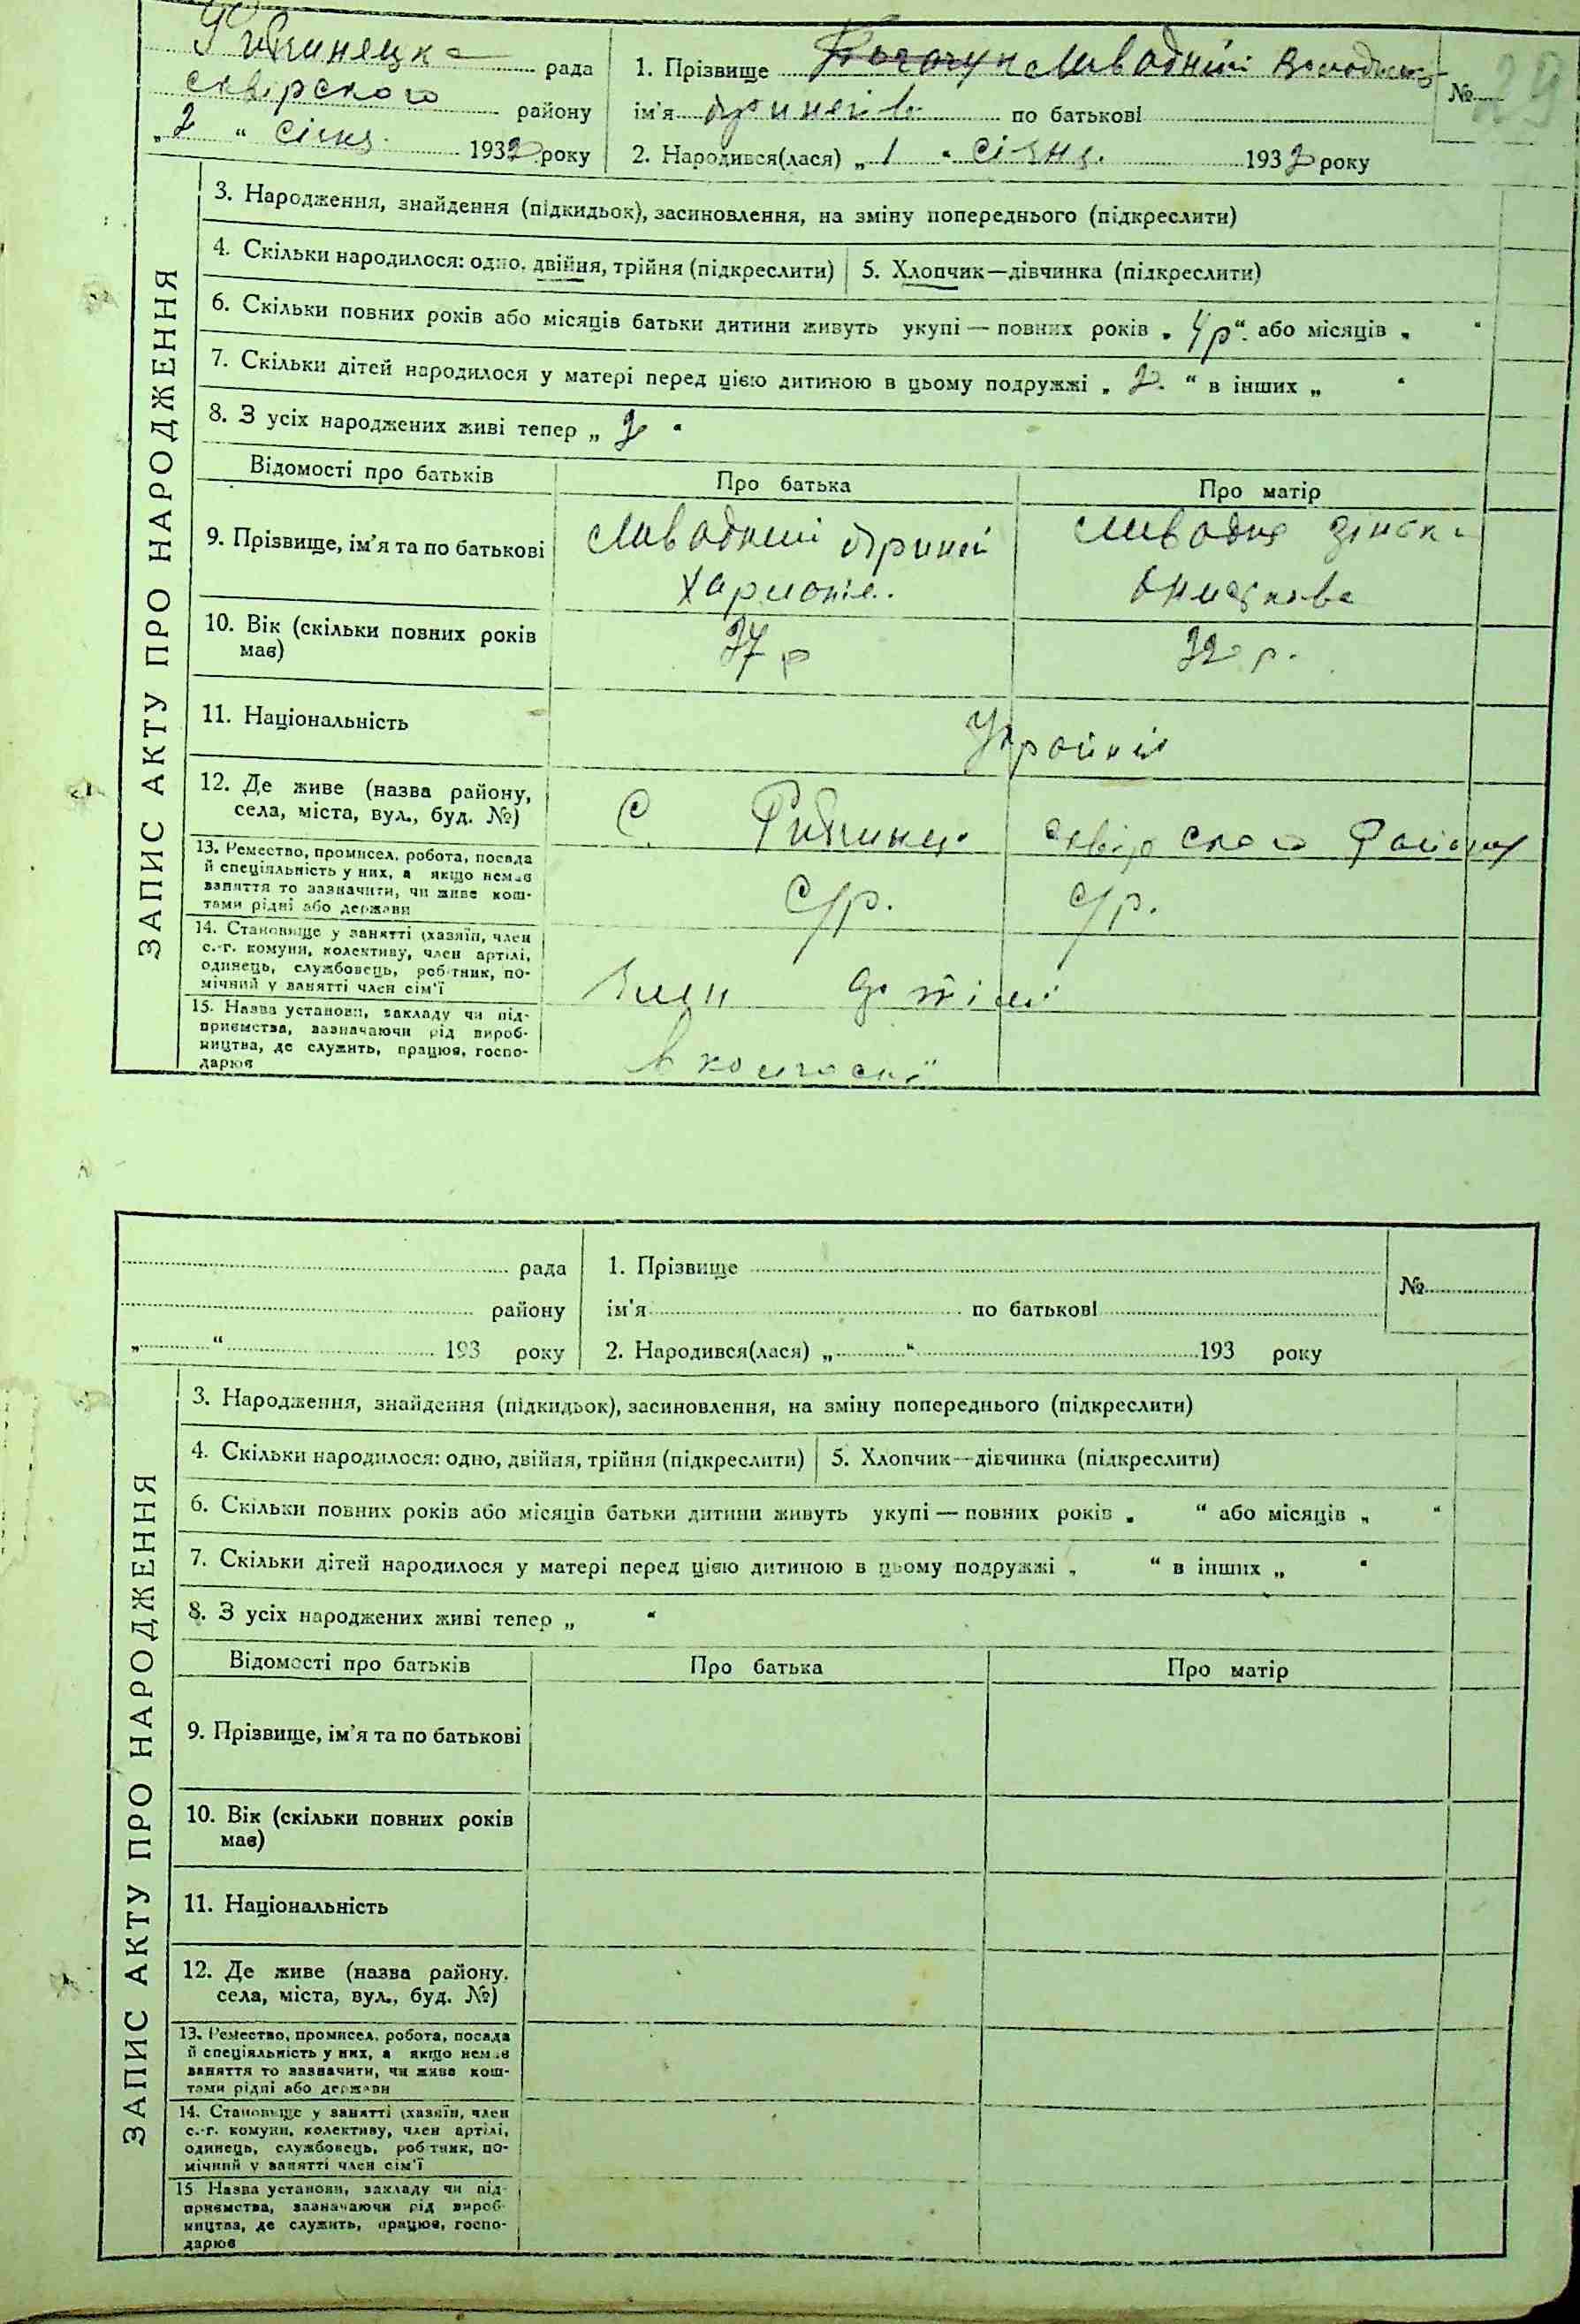 рада
сквірского району
„ 2 “ січня 1932 року
1. Прізвище Лободній Володимир
ім'я по батькові
2. Народився(лася) „ 1 “ січня. 1932 року
№ 29
ЗАПИС АКТУ ПРО НАРОДЖЕННЯ
3. Народження, знайдення (підкидьок), засиновлення, на зміну попереднього (підкреслити)
4. Скільки народилося: одно, двійня, трійня (підкреслити)
5. Хлопчик—дівчинка (підкреслити)
6. Скільки повних років або місяців батьки дитини живуть укупі — повних років „ “ або місяців „ “
7. Скільки дітей народилося у матері перед цією дитиною в цьому подружжі „ 2. “ в інших „ “
8. З усіх народжених живі тепер „ 2 “
Відомості про батьків
Про батька
Про матір
9. Прізвище, ім'я та по батькові
10. Вік (скільки повних років
має)
37 р
32 р.
11. Національність
Україн
12. Де живе (назва району,
села, міста, вул., буд. №)
С. сквірского району
13. Ремество, промисел, робота, посада
й спеціяльність у них, а якщо немає
заняття то зазначити, чи живе кош-
тами рідні або держави
с/р.
с/р.
14. Становище у занятті (хазяїн, член
с.-г. комуни, колективу, член артілі,
одинець, службовець, робітник, по-
мічний у занятті член сім'ї
Член артілі
15. Назва установи, закладу чи під-
приємства, зазначаючи рід вироб-
ництва, де служить, працює, госпо-
дарює
в колгоспі
рада
району
„ “ 193 року
1. Прізвище
ім'я по батькові
2. Народився(лася) „ “ 193 року
№
ЗАПИС АКТУ ПРО НАРОДЖЕННЯ
3. Народження, знайдення (підкидьок), засиновлення, на зміну попереднього (підкреслити)
4. Скільки народилося: одно, двійня, трійня (підкреслити)
5. Хлопчик—дівчинка (підкреслити)
6. Скільки повних років або місяців батьки дитини живуть укупі — повних років „ “ або місяців „ “
7. Скільки дітей народилося у матері перед цією дитиною в цьому подружжі „ “ в інших „ “
8. З усіх народжених живі тепер „ “
Відомості про батьків
Про батька
Про матір
9. Прізвище, ім'я та по батькові
10. Вік (скільки повних років
має)
11. Національність
12. Де живе (назва району,
села, міста, вул., буд. №)
13. Ремество, промисел, робота, посада
й спеціяльність у них, а якщо немає
заняття то зазначити, чи живе кош-
тами рідні або держави
14. Становище у занятті (хазяїн, член
с.-г. комуни, колективу, член артілі,
одинець, службовець, робітник, по-
мічний у занятті член сім'ї
15. Назва установи, закладу чи під-
приємства, зазначаючи рід вироб-
ництва, де служить, працює, госпо-
дарює